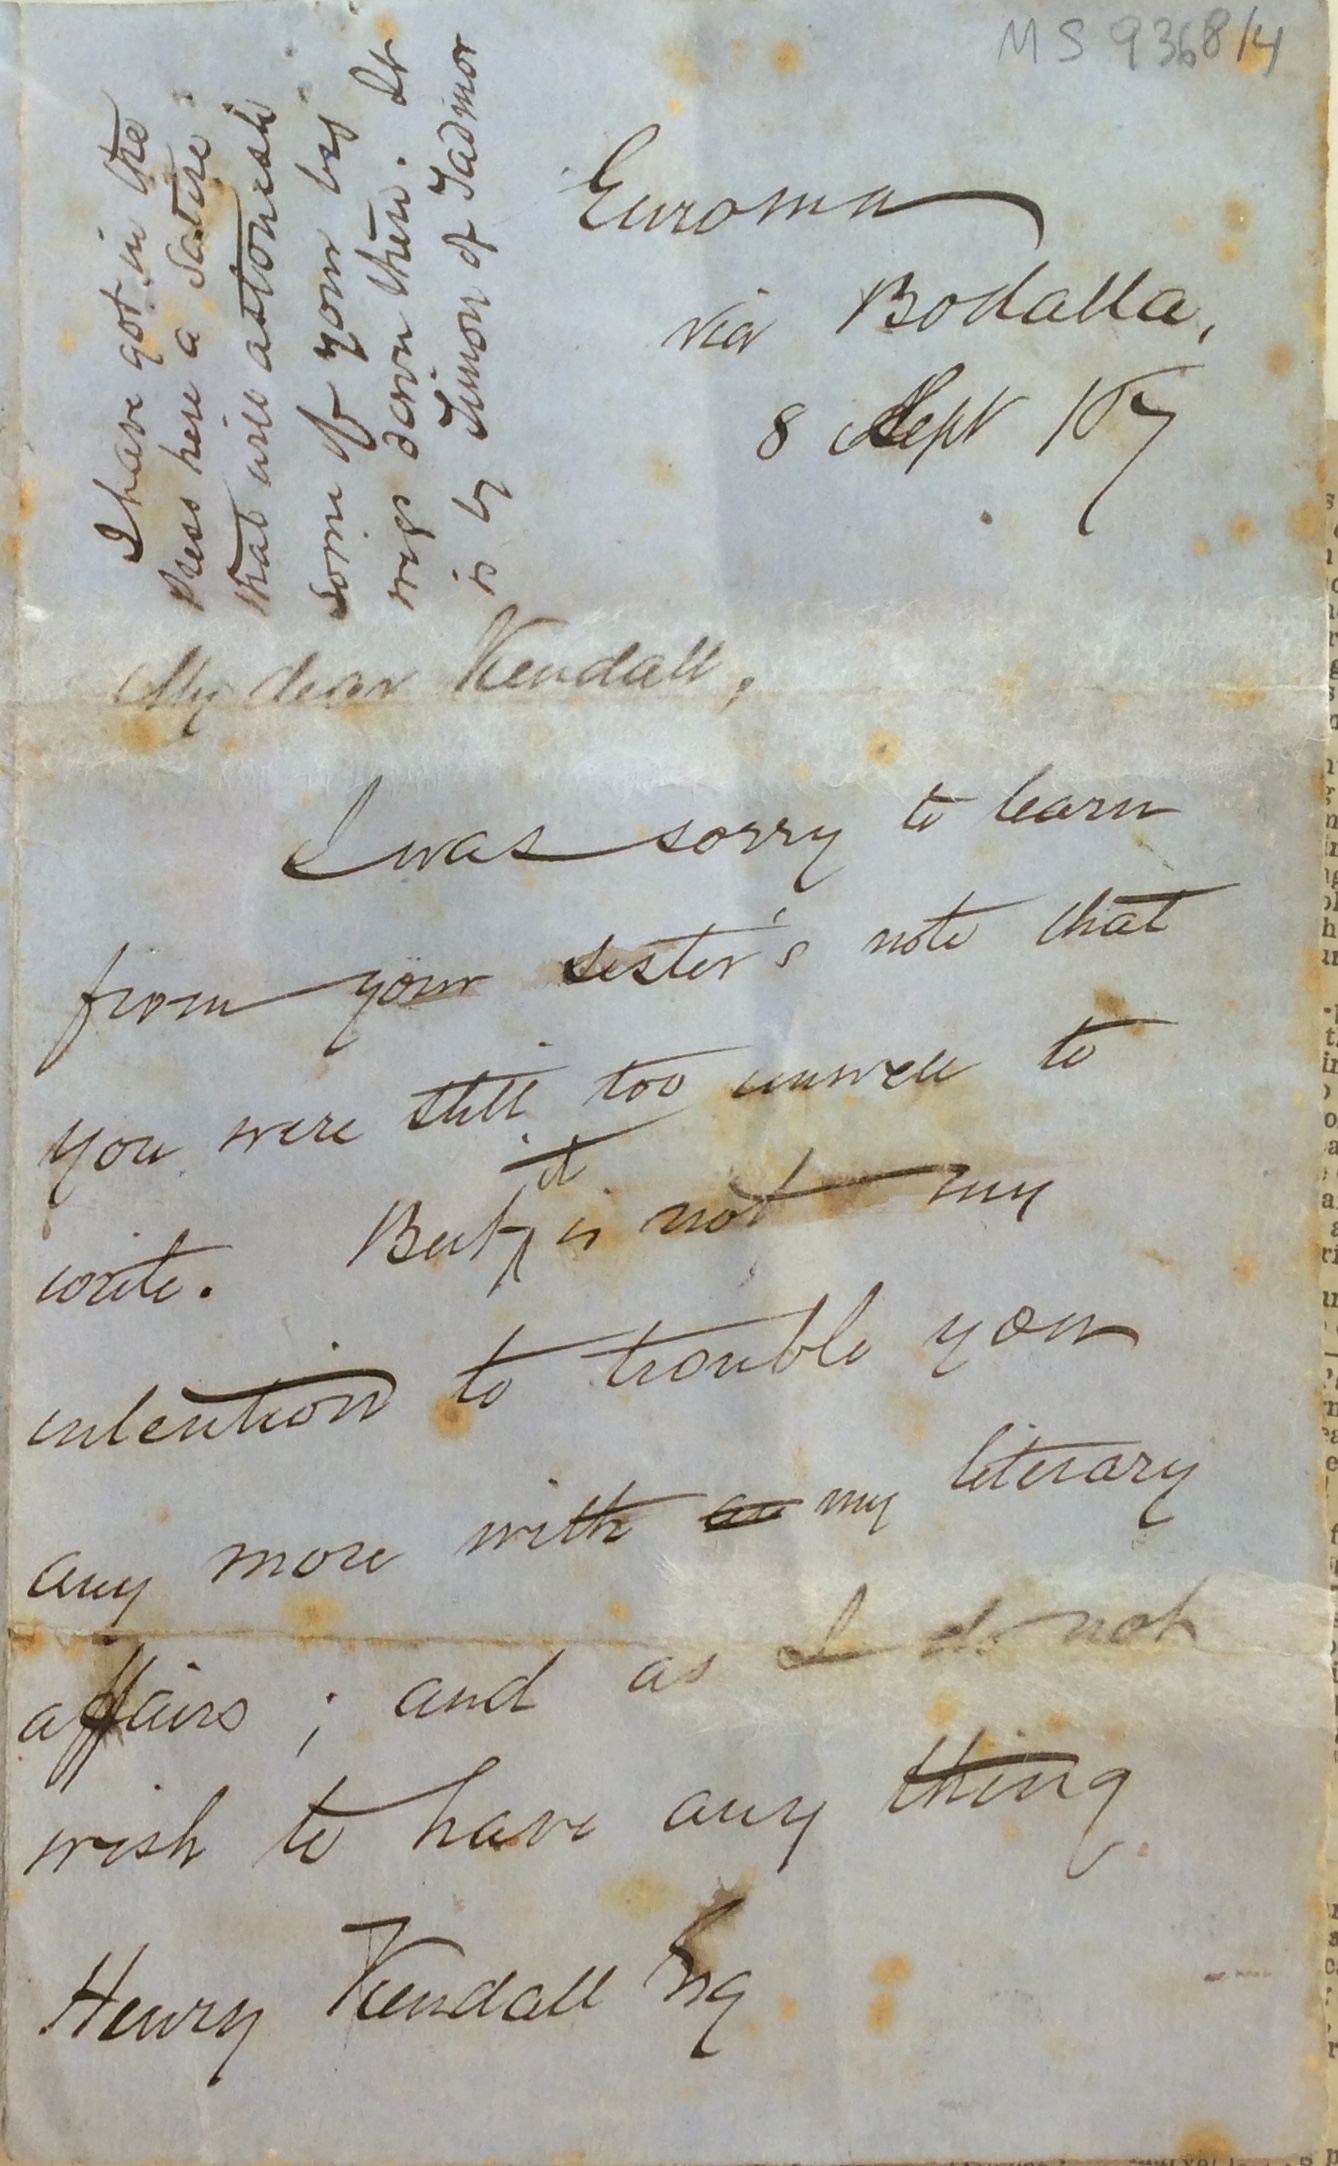 MS 9368/4
I have got in the
Press here a Satire
that will astonish
some of your big
wigs down there. It
is by Timon of Tadmor
Euroma
via Bodalla,
8 Sept /67
My dear Kendall,
I was sorry to learn
from your sister's note that
you were still too unwell to
write. But it is not my
intention to trouble you
any more with my literary
affairs; and as I do not
wish to have any thing
Henry Kendall Esq